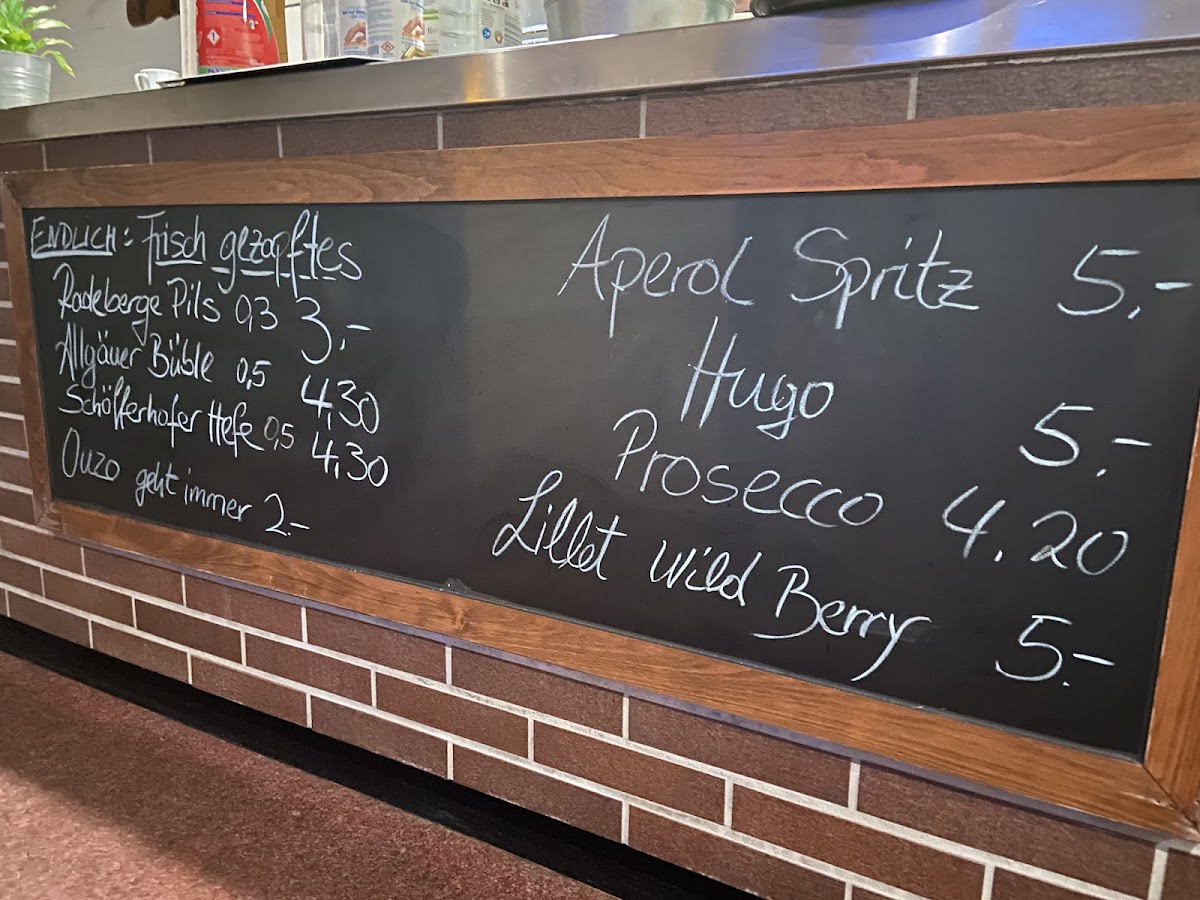 ENDLICH: Frisch gezapftes
Radeberge Pils 0,3 3,-
Allgäuer Büble 0,5 4,30
Schöfferhofer Hefe 0,5 4,30
Ouzo geht immer 2.-
Aperol Spritz 5,-
Hugo 5.-
Prosecco 4.20
Lillet Wild Berry 5.-